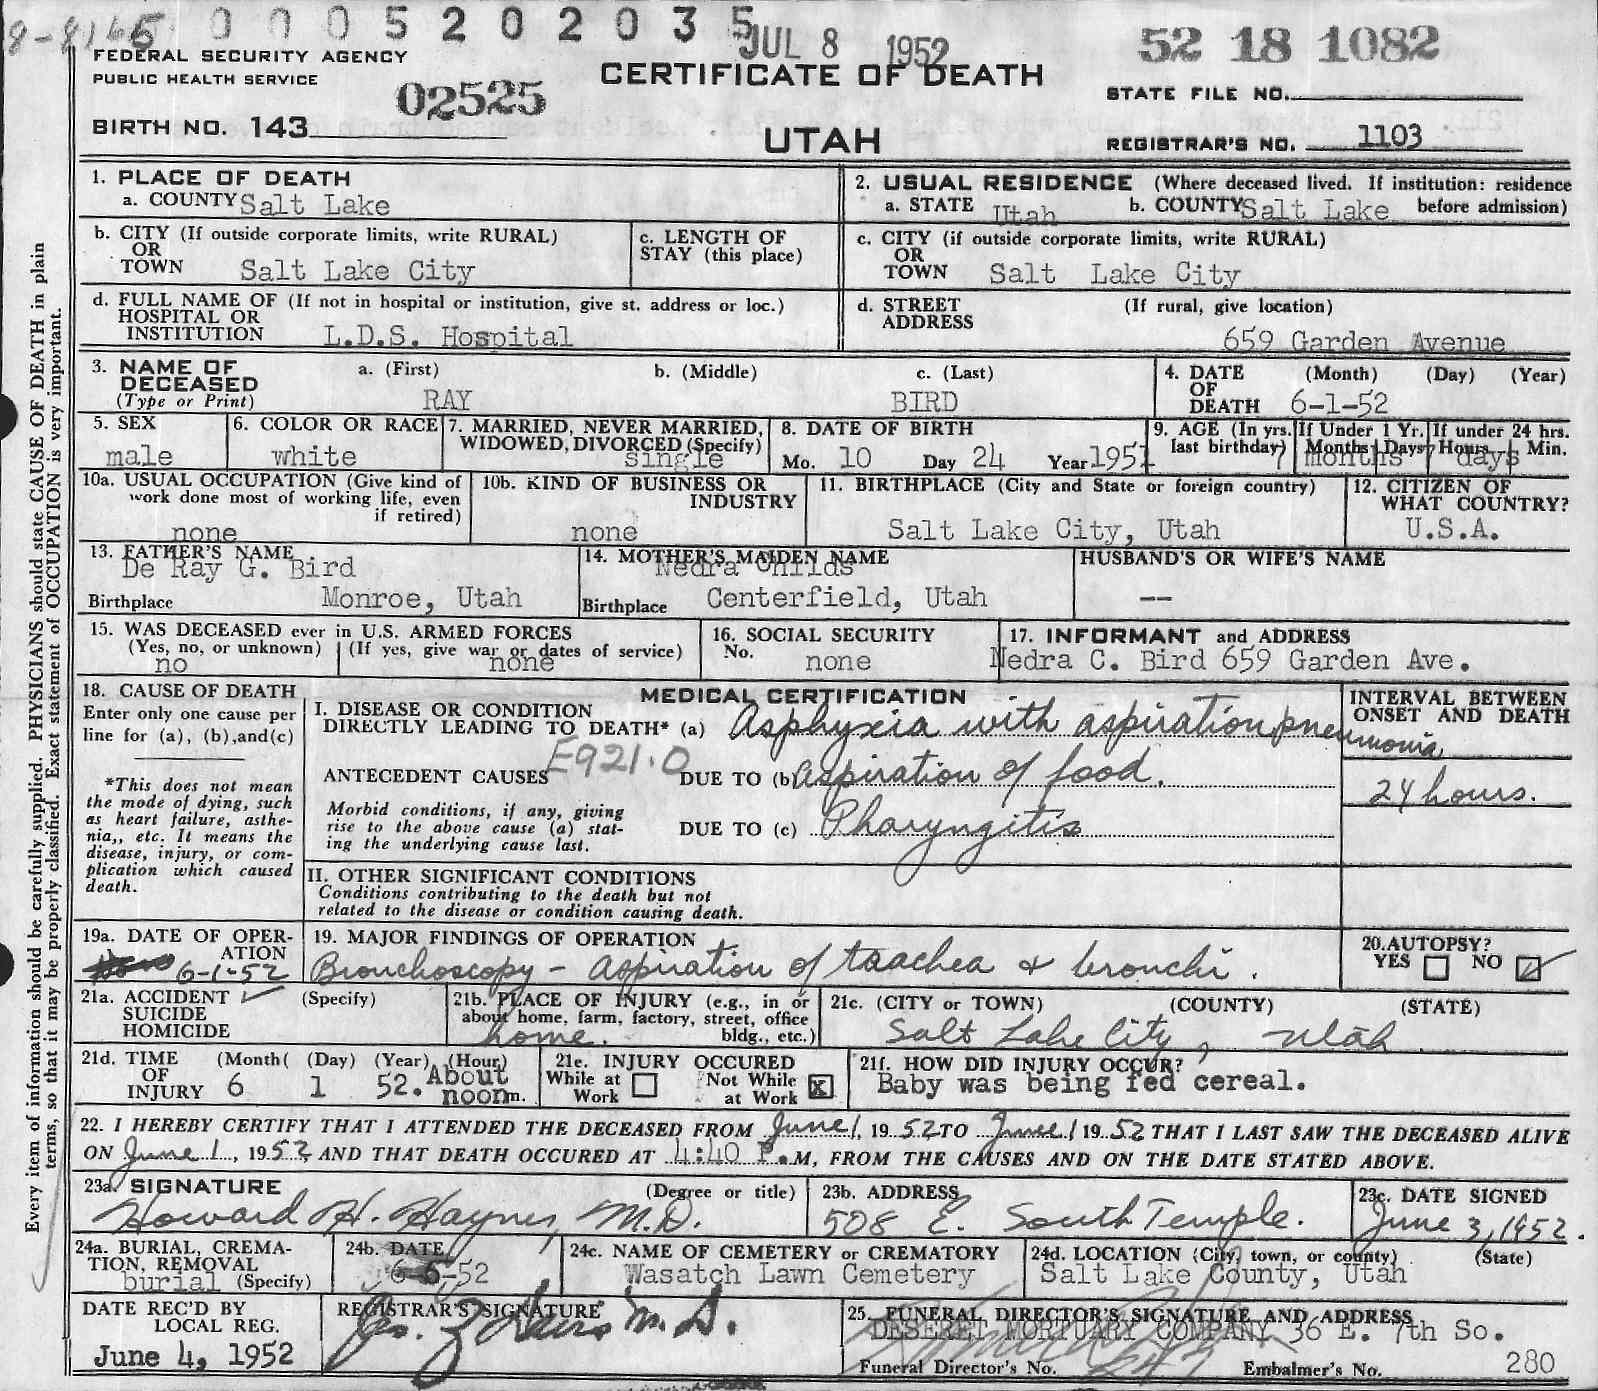 8-8165 0005202035 JUL 8 1952 52 18 1082
FEDERAL SECURITY AGENCY
PUBLIC HEALTH SERVICE
02525
CERTIFICATE OF DEATH
STATE FILE NO.
BIRTH NO. 143
UTAH
REGISTRAR'S NO. 1103
1. PLACE OF DEATH
a. COUNTY Salt Lake
2. USUAL RESIDENCE (Where deceased lived. If institution: residence before admission)
a. STATE Utah b. COUNTY Salt Lake
b. CITY (If outside corporate limits, write RURAL)
OR
TOWN Salt Lake City
c. LENGTH OF
STAY (this place)
c. CITY (if outside corporate limits, write RURAL)
OR
TOWN Salt Lake City
d. FULL NAME OF (If not in hospital or institution, give st. address or loc.)
HOSPITAL OR
INSTITUTION L.D.S. Hospital
d. STREET (If rural, give location)
ADDRESS
659 Garden Avenue
3. NAME OF
DECEASED
(Type or Print)
a. (First) b. (Middle) c. (Last)
RAY BIRD
4. DATE (Month) (Day) (Year)
OF
DEATH 6-1-52
5. SEX
male
6. COLOR OR RACE
white
7. MARRIED, NEVER MARRIED,
WIDOWED, DIVORCED (Specify)
single
8. DATE OF BIRTH
Mo. 10 Day 24 Year 1951
9. AGE (In yrs. last birthday)
If Under 1 Yr. Months Days
If under 24 hrs. Hours Min.
7 months 7 days
10a. USUAL OCCUPATION (Give kind of
work done most of working life, even
if retired)
none
10b. KIND OF BUSINESS OR
INDUSTRY
none
11. BIRTHPLACE (City and State or foreign country)
Salt Lake City, Utah
12. CITIZEN OF
WHAT COUNTRY?
U.S.A.
13. FATHER'S NAME
De Ray G. Bird
Birthplace Monroe, Utah
14. MOTHER'S MAIDEN NAME
Nedra Childs
Birthplace Centerfield, Utah
HUSBAND'S OR WIFE'S NAME
--
15. WAS DECEASED ever in U.S. ARMED FORCES
(Yes, no, or unknown) (If yes, give war or dates of service)
no none
16. SOCIAL SECURITY
No. none
17. INFORMANT and ADDRESS
Nedra C. Bird 659 Garden Ave.
18. CAUSE OF DEATH
Enter only one cause per
line for (a), (b), and (c)
*This does not mean
the mode of dying, such
as heart failure, asthe-
nia,, etc. It means the
disease, injury, or com-
plication which caused
death.
MEDICAL CERTIFICATION
I. DISEASE OR CONDITION
DIRECTLY LEADING TO DEATH* (a) Asphyxia with aspiration pneumonia
ANTECEDENT CAUSES E921.0 DUE TO (b) Aspiration of food.
Morbid conditions, if any, giving
rise to the above cause (a) stat-
ing the underlying cause last.
DUE TO (c) Pharyngitis
INTERVAL BETWEEN
ONSET AND DEATH
24 hours.
II. OTHER SIGNIFICANT CONDITIONS
Conditions contributing to the death but not
related to the disease or condition causing death.
19a. DATE OF OPER-
ATION
6-1-52
19. MAJOR FINDINGS OF OPERATION
Bronchoscopy - aspiration of trachea & bronchi.
20. AUTOPSY?
YES NO
21a. ACCIDENT (Specify)
SUICIDE
HOMICIDE
21b. PLACE OF INJURY (e.g., in or
about home, farm, factory, street, office
bldg., etc.)
home.
21c. (CITY or TOWN) (COUNTY) (STATE)
Salt Lake City, Utah
21d. TIME (Month( (Day) (Year) (Hour)
OF
INJURY 6 1 52. About
noon m.
21e. INJURY OCCURED
While at
Work
Not While
at Work x
21f. HOW DID INJURY OCCUR?
Baby was being fed cereal.
22. I HEREBY CERTIFY THAT I ATTENDED THE DECEASED FROM June 1, 19 52 TO June 1 19 52 THAT I LAST SAW THE DECEASED ALIVE
ON June 1, 19 52, AND THAT DEATH OCCURED AT 4:40 P.M, FROM THE CAUSES AND ON THE DATE STATED ABOVE.
23a. SIGNATURE (Degree or title)
Howard H. Haynes, M.D.
23b. ADDRESS
508 E. South Temple.
23c. DATE SIGNED
June 3, 1952.
24a. BURIAL, CREMA-
TION, REMOVAL
burial (Specify)
24b. DATE
6-5-52
24c. NAME OF CEMETERY or CREMATORY
Wasatch Lawn Cemetery
24d. LOCATION (City, town, or county) (State)
Salt Lake County, Utah
DATE REC'D BY
LOCAL REG.
June 4, 1952
REGISTRAR'S SIGNATURE
M.D.
25. FUNERAL DIRECTOR'S SIGNATURE AND ADDRESS
DESERET MORTUARY COMPANY 36 E. 7th So.
Funeral Director's No. Embalmer's No. 280
Every item of information should be carefully supplied. PHYSICIANS should state CAUSE OF DEATH in plain
terms, so that it may be properly classified. Exact statement of OCCUPATION is very important.